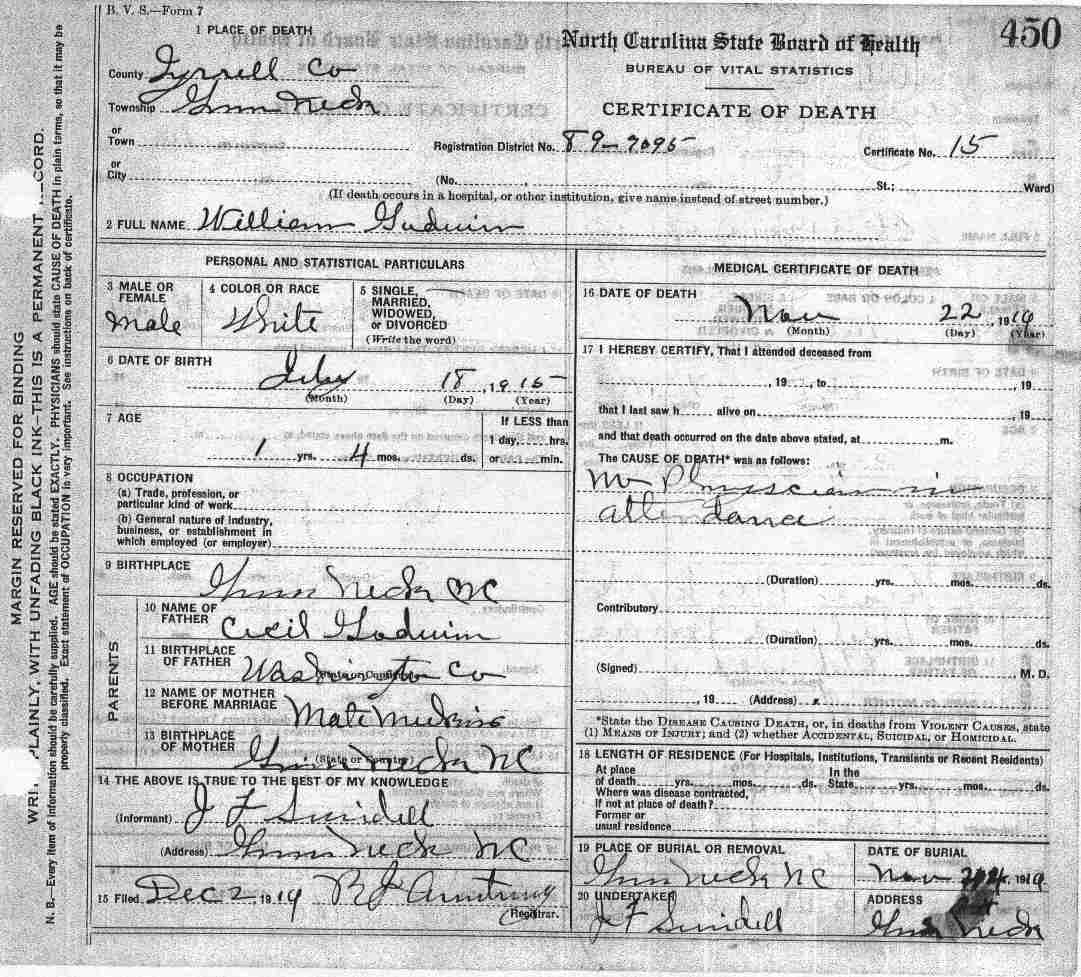 B. V. S.—Form 7
450
1 PLACE OF DEATH
North Carolina State Board of Health
BUREAU OF VITAL STATISTICS
CERTIFICATE OF DEATH
County Tyrrell Co
Township Gum Neck
or
Town
Registration District No. 89-7095 Certificate No. 15
or
City (No. , St.; Ward)
(If death occurs in a hospital, or other institution, give name instead of street number.)
2 FULL NAME William Goduin
PERSONAL AND STATISTICAL PARTICULARS
3 MALE OR FEMALE
Male
4 COLOR OR RACE
White
5 SINGLE, MARRIED, WIDOWED, or DIVORCED
(Write the word)
6 DATE OF BIRTH
July 18, 1915
(Month) (Day) (Year)
7 AGE
1 yrs. 4 mos. ds.
If LESS than
1 day, hrs.
or min.
8 OCCUPATION
(a) Trade, profession, or
particular kind of work
(b) General nature of industry,
business, or establishment in
which employed (or employer)
9 BIRTHPLACE Gum Neck NC
PARENTS
10 NAME OF FATHER Cecil Goduin
11 BIRTHPLACE OF FATHER Washington Co
12 NAME OF MOTHER BEFORE MARRIAGE
13 BIRTHPLACE OF MOTHER Gum Neck NC
(State or Country)
14 THE ABOVE IS TRUE TO THE BEST OF MY KNOWLEDGE
(Informant) J F Swindell
(Address) Gum Neck NC
15 Filed Dec 2 19 R J Armstrong
Registrar.
MEDICAL CERTIFICATE OF DEATH
16 DATE OF DEATH
Nov 22, 1916
(Month) (Day) (Year)
17 I HEREBY CERTIFY, That I attended deceased from
, 19 , to , 19
that I last saw h alive on , 19
and that death occurred on the date above stated, at m.
The CAUSE OF DEATH* was as follows:
No Physician in
attendance
(Duration) yrs. mos. ds.
Contributory
(Duration) yrs. mos. ds.
(Signed) M. D.
, 19 (Address)
*State the DISEASE CAUSING DEATH, or, in deaths from VIOLENT CAUSES, state
(1) MEANS OF INJURY; and (2) whether ACCIDENTAL, SUICIDAL, or HOMICIDAL.
18 LENGTH OF RESIDENCE (For Hospitals, Institutions, Transients or Recent Residents)
At place of death yrs. mos. ds. In the State yrs. mos. ds.
Where was disease contracted,
If not at place of death?
Former or
usual residence
19 PLACE OF BURIAL OR REMOVAL
Gum Neck NC
DATE OF BURIAL
Nov 19
20 UNDERTAKER
J F Swindell
ADDRESS
Gum Neck
MARGIN RESERVED FOR BINDING
PLAINLY, WITH UNFADING BLACK INK—THIS IS A PERMANENT
N. B.—Every item of information should be carefully supplied. AGE should be stated EXACTLY. PHYSICIANS should state CAUSE OF DEATH in plain terms, so that it may be
properly classified. Exact statement of OCCUPATION is very important. See instructions on back of certificate.